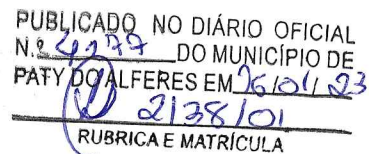 PUBLICADO NO DIÁRIO OFICIAL
N.º 4277 DO MUNICÍPIO DE
PATY DO ALFERES EM 16/01/23
2138/01
RUBRICA E MATRÍCULA